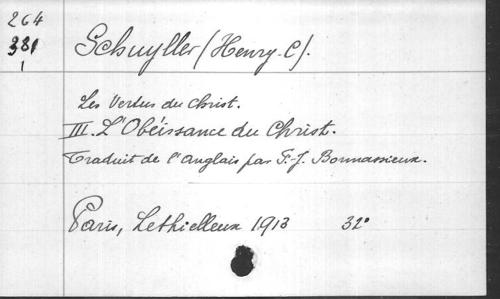 264
381
1
Schuyller (Henry-C).
Les Vertus du Christ.
III. L'Obéissance du Christ.
Traduit de l'anglais par F.-J. Bonnassieux.
Paris, Lethielleux 1913 32°